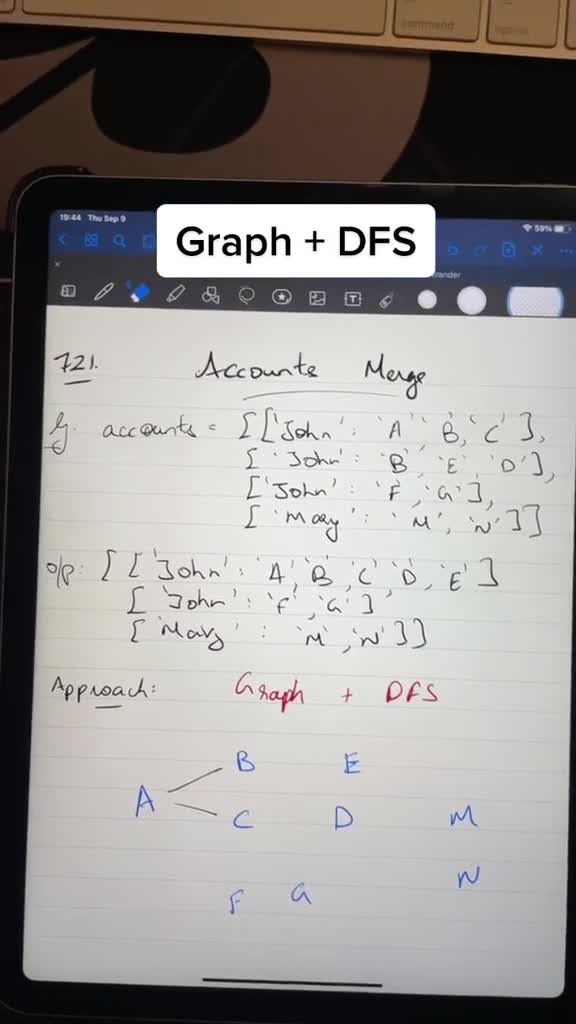 command
option
19:44 Thu Sep 9
59%
Graph + DFS
721. Accounts Merge
accounts = [['John': 'A' 'B,'C'],
['John': 'B' 'E' 'D'],
['John': 'F','G'],
['Mary': 'M', 'N']]
o/p: [['John': 'A','B,'C','D','E']
['John': 'F','G']
['Mary': 'M','N']]
Approach: Graph + DFS
B E
A
C D M
N
F G